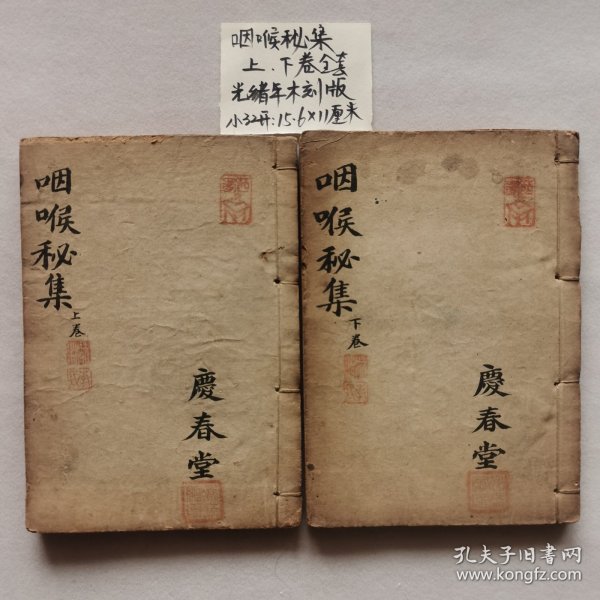 咽喉秘集
上、下卷全套
光緒年木刻版
小32开:15.6×11厘米
咽喉秘集
上卷
慶春堂
咽喉秘集
下卷
慶春堂
孔夫子旧书网
www.kongfz.com